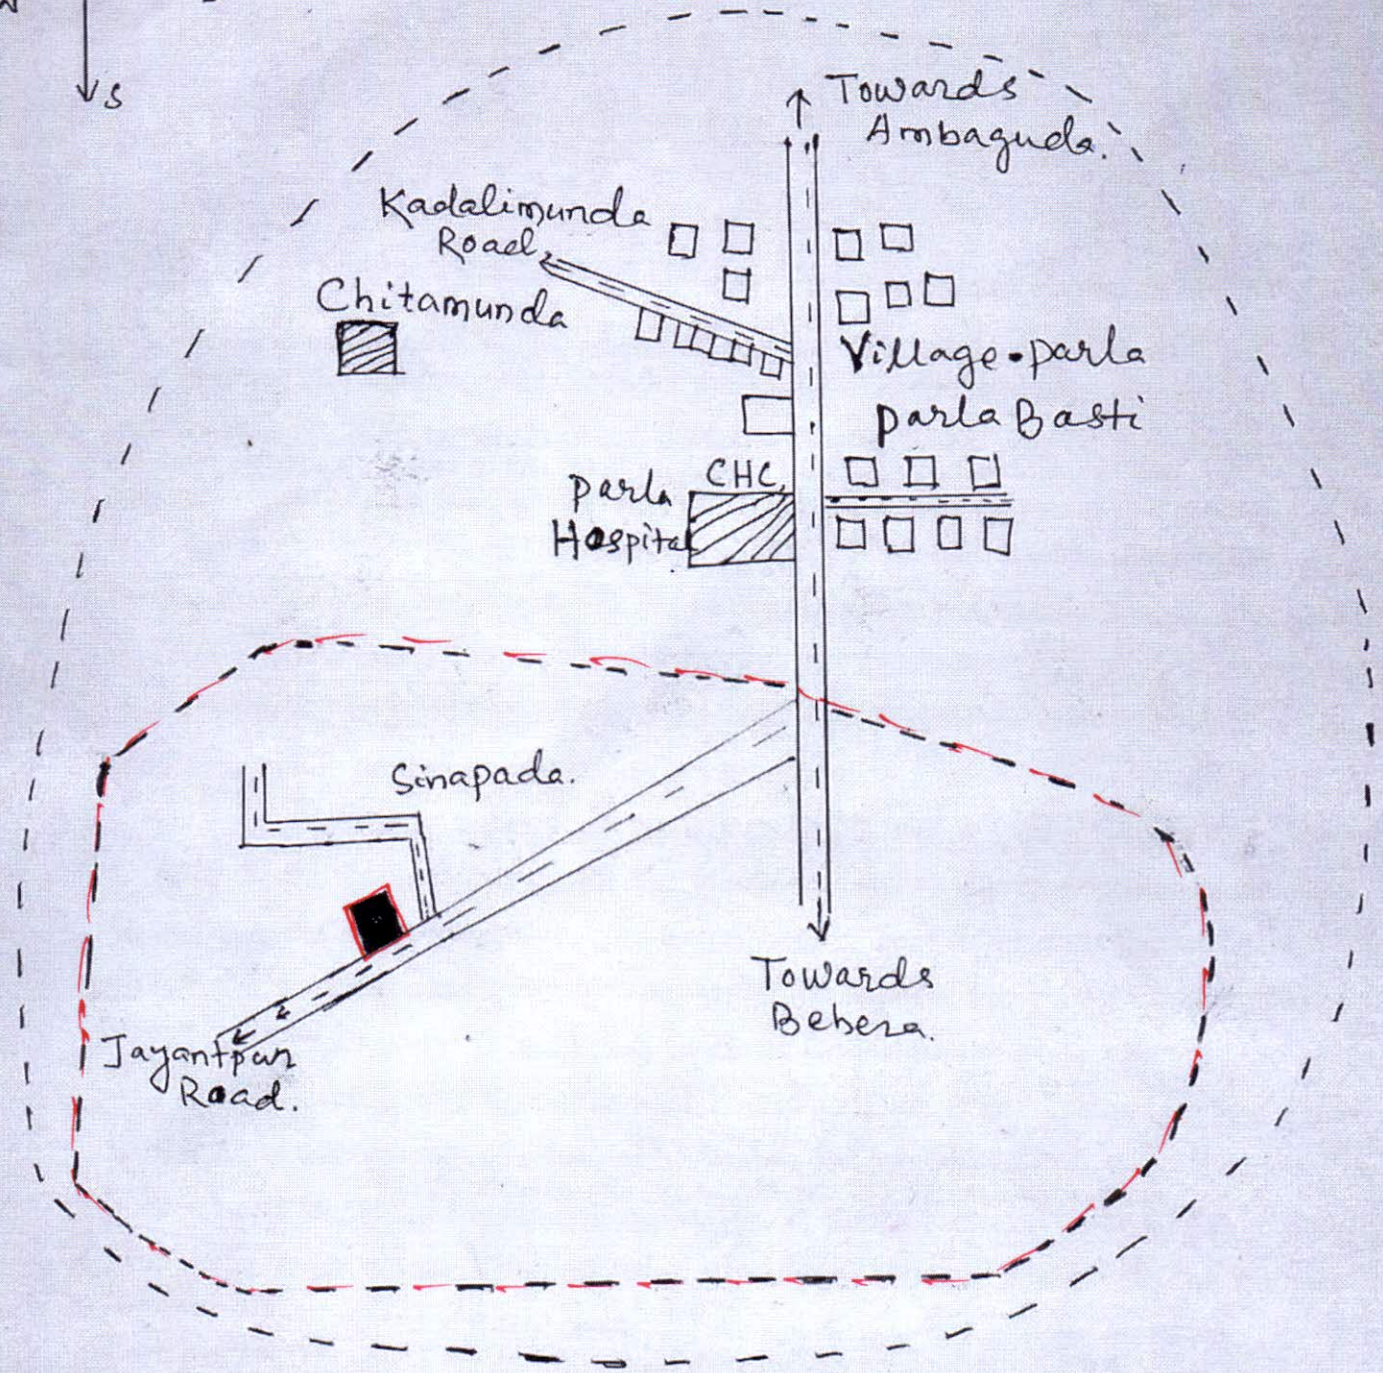 S
Towards
Ambaguda.
Kadalimunda
Road
Chitamunda
Village-parla
parla Basti
CHC
parla
Hospital
Sinapada.
Towards
Bebera.
Jayantpur
Road.